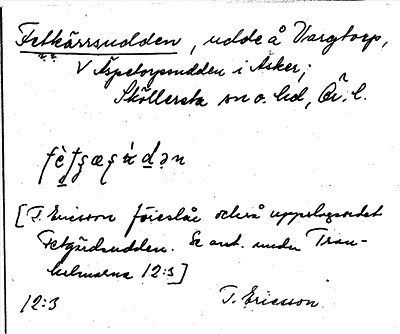 Fetkärrsudden, udde å Vargtorp,
V Äspetorpsudden i Asker;
Sköllersta sn o. hd, Ör. l.
[T. Ericsson föreslår också uppslagsordet
Fetgärdsudden. Se ant. under Tran-
holmarna 12:3]
12:3 T. Ericsson